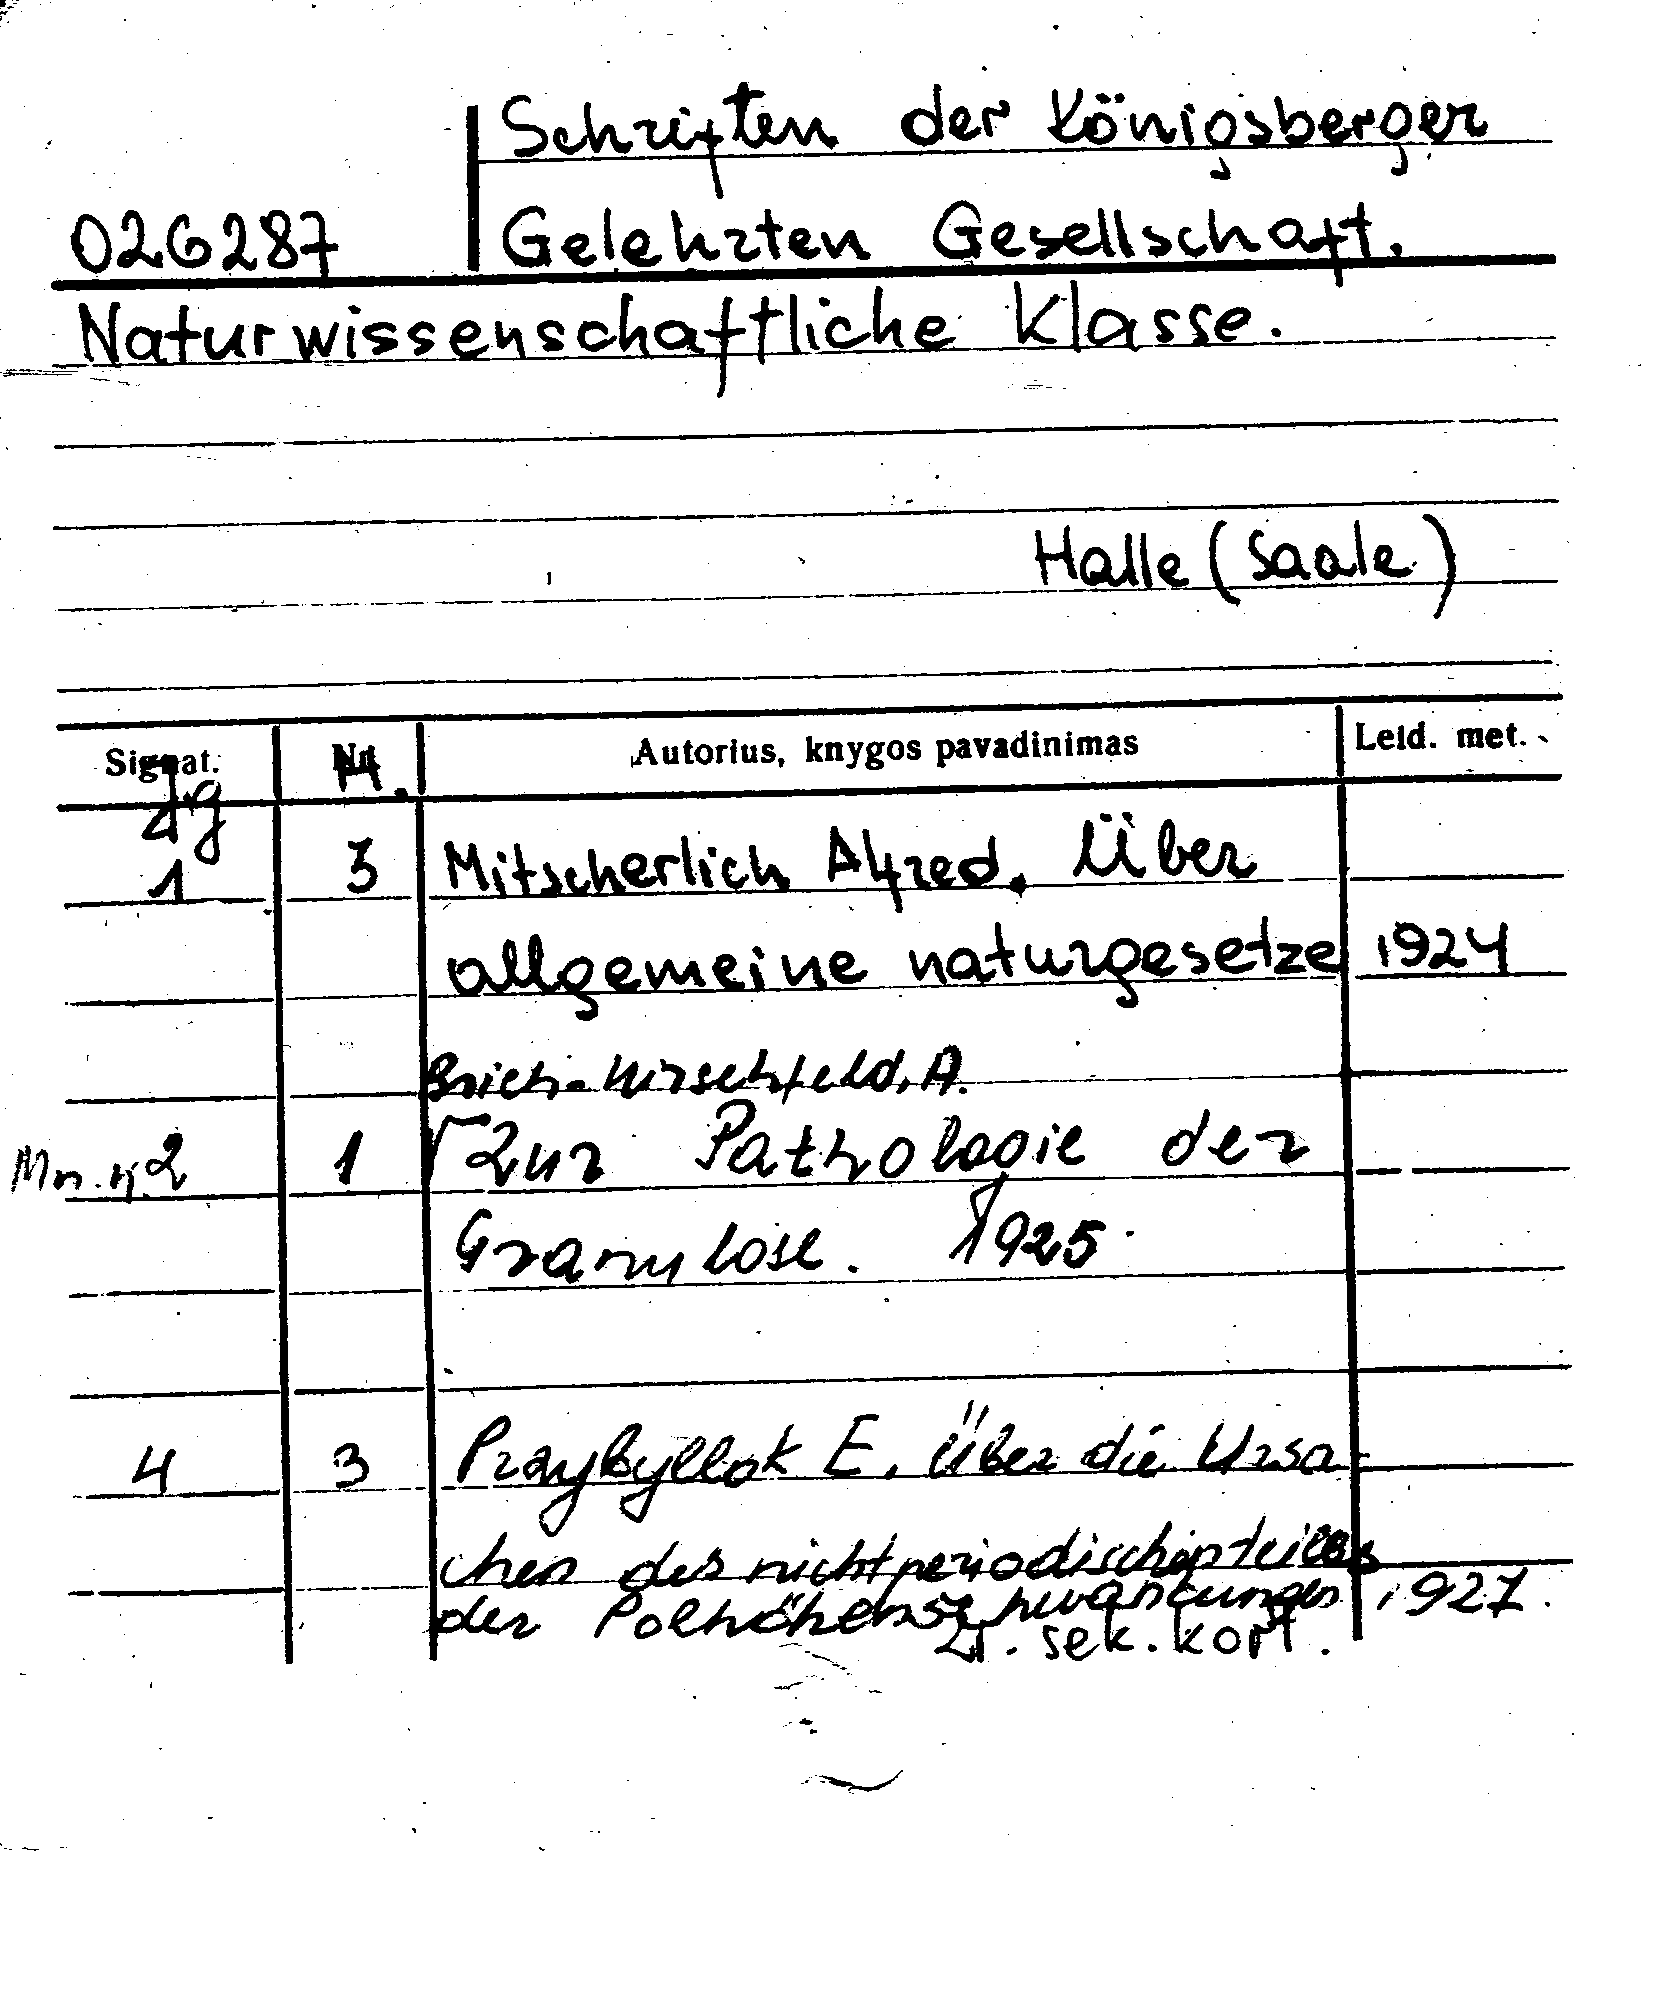 Schriften der Königsberger
026287 Gelehrten Gesellschaft.
Naturwissenschaftliche Klasse.
Halle (Saale)
Signat. Nr. Autorius, knygos pavadinimas Leid. met.
Jg H.
1 3 Mitscherlich Alfred. Über
allgemeine naturgesetze 1924
Brich-Hirschfeld, A.
2 1 Zur Pathologie der
Granulose. 1925
4 3 Przybyllok E. Über die Ursa-
chen des nichtperiodischen teiles
der Polhöhenschwankungen 1927.
Žr. sek. kort.